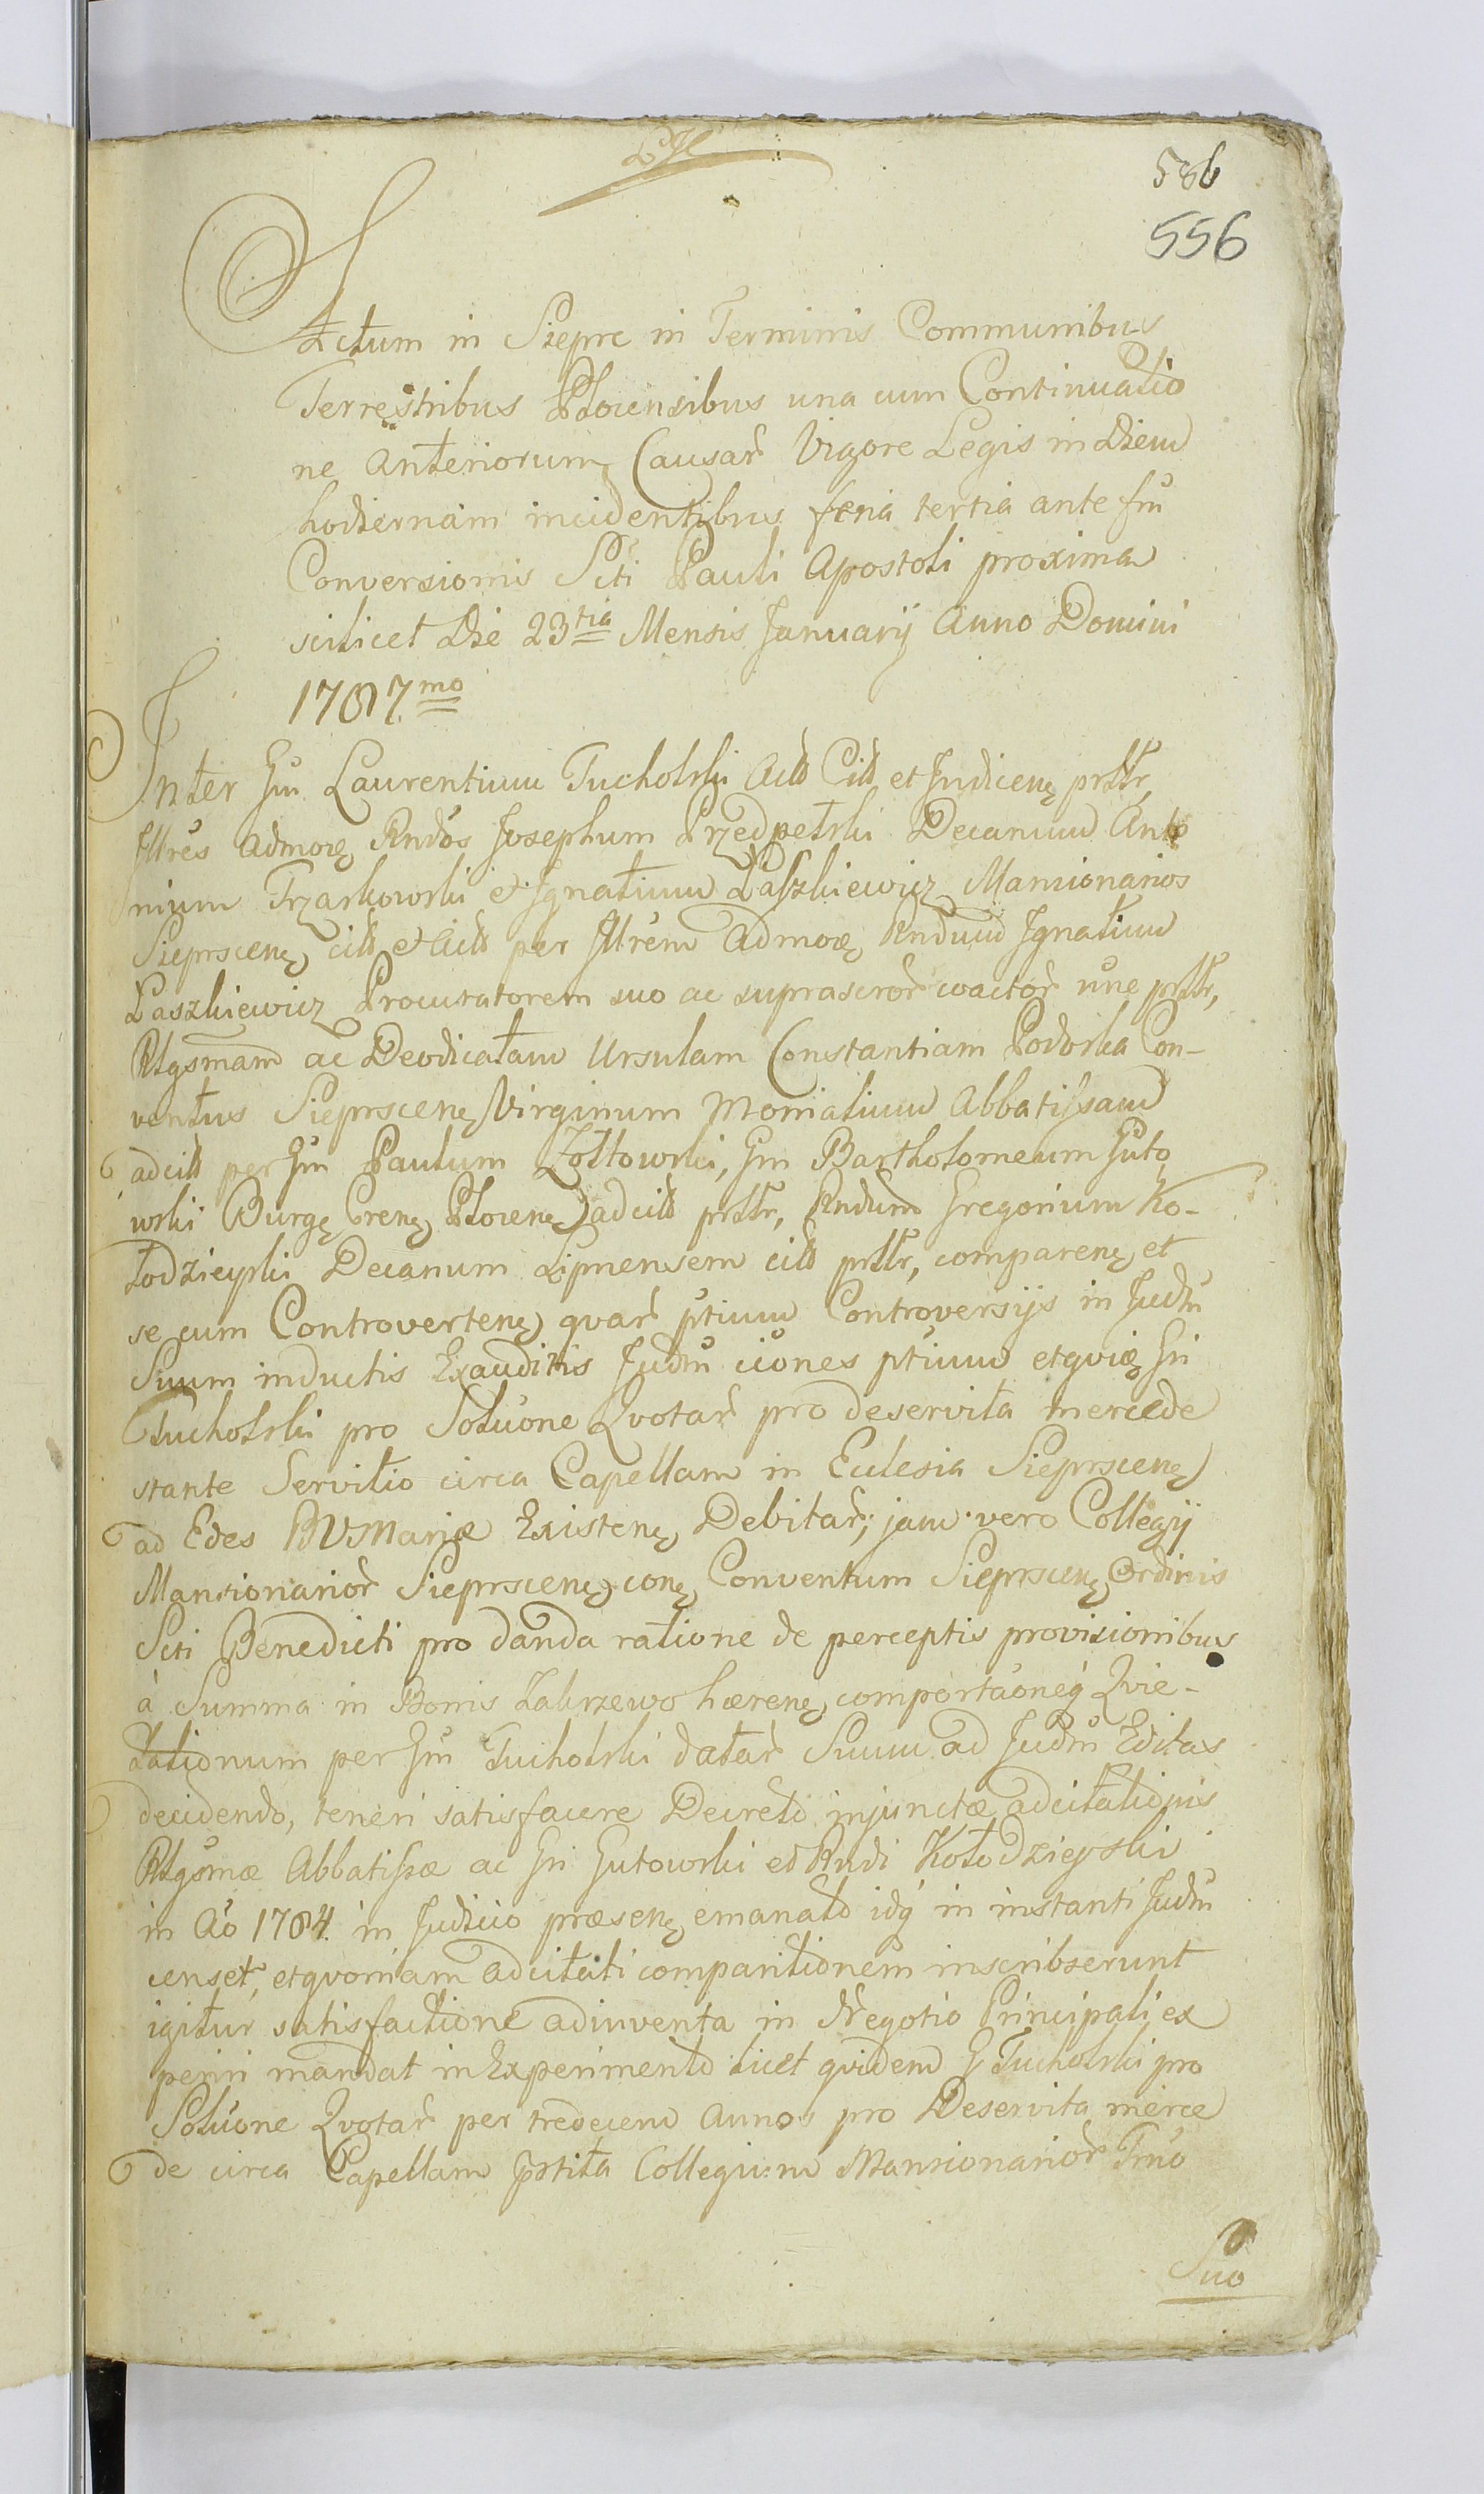 586
556
Actum in Sieprc in Terminis Communibus
Terrestribus Plocensibus una cum Continuatio
ne Anteriorum Causar Vigore Legis in Diem
hodiernam incidentibus feria tertia ante fm
Conversionis Scti Pauli Apostoli proxima
scilicet Die 23tia Mensis January Anno Domini
1787mo
Inter Gm Laurentium Tucholski Actt Citt et Judicenę prtltr,
Illres Admorę Rndos Josephum Przedpełski Decanum Anto
nium Trzaskowski et Ignatium Paszkiewicz Mansionarios
Sieprscenę citt et Actt per Illrem Admorę Rndum Ignatium
Paszkiewicz Procuratorem suo ac suprascror coactor nne prtltr,
Rlgsmam ac Deodicatam Ursulam Constantiam Podoska Con-
ventus Sieprscenę Virginum Monialium Abbatissam
adcitt per Gm Paulum Zołtowski, Gm Bartholomeum Guto
wski Burgę Crenę Plocenę adcitt prtltr, Rndum Gregorium Ko-
łodzieyski Decanum Lipnensem citt prtltr, comparenę et
se cum Controvertenę qvar ptium Controversijs in Judm
Suum inductis Exauditis Judm ciones ptium etqvię Gn
Tucholski pro Soluone Qvotar pro deservita mercede
stante Servitio circa Capellam in Eclesia Sieprscenę
ad Edes BVMariæ Existenę Debitar; jam vero Collegij
Mansionarior Sieprscenę conę Conventum Sieprscenę Ordinis
Scti Benedicti pro danda ratione de perceptis provisionibus
à Summa in Bonis Zakrzewo hærenę, comportaoneq Qvie-
tationum per Gm Tucholski datar Suum ad Judm Editas
decidendo, teneri satisfacere Decreto injunctæ adcitationis
Rlgsmæ Abbatissæ ac Gn Gutowski et Rndi Kołodzieyski
in Ao 1784. in Judicio præsenę emanato idq in instanti Judm
censet, etqvoniam adcitati comparitionem inscribserunt
igitur satisfactione adinventa in Negotio Principali ex
periri mandat in Experimento licet qvidem G Tucholski pro
Soluone Qvotar per tredecem Annos pro Deservita merce
de circa Capellam prtita Collegium Mansionarior Trno
Suo